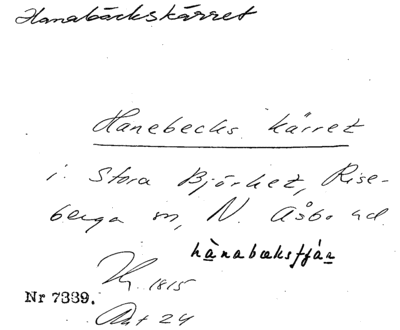 Hanabäckskärret
Hanebecks kärret
i Stora Björket, Rise-
berga sn, N. Åsbo hd.
hànabæksʃjár̲
1815
Nr 7339.
Akt 24